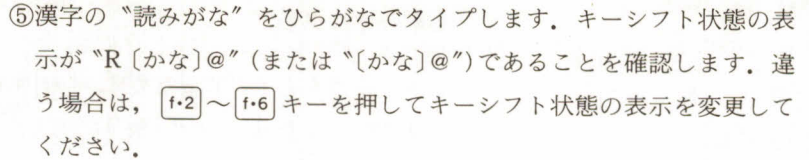 ⑤漢字の〝読みがな〟をひらがなでタイプします．キーシフト状態の表
示が〝R〔かな〕@〟(または〝〔かな〕@〟)であることを確認します．違
う場合は，f･2～f･6キーを押してキーシフト状態の表示を変更して
ください．